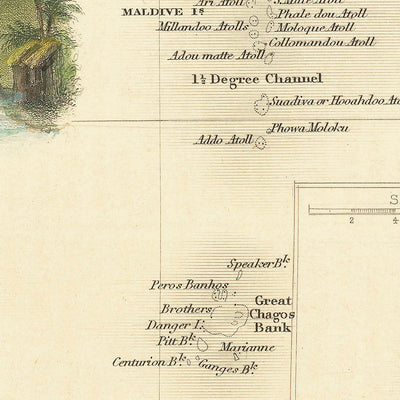 Ari Atoll
MALDIVE Iˢ
Phale dou Atoll
Millandoo Atolls
Moloque Atoll
Collomandou Atoll
Adou matte Atoll
1½ Degree Channel
Suadiva or Hooahdoo
Phowa Moloku
Addo Atoll
S
2 4
Speaker Bᵏ.
Peros Banhos
Brothers
Great
Chagos
Bank
Danger I.
Pitt Bᵏ
Marianne
Centurion Bᵏ
Ganges Bᵏ